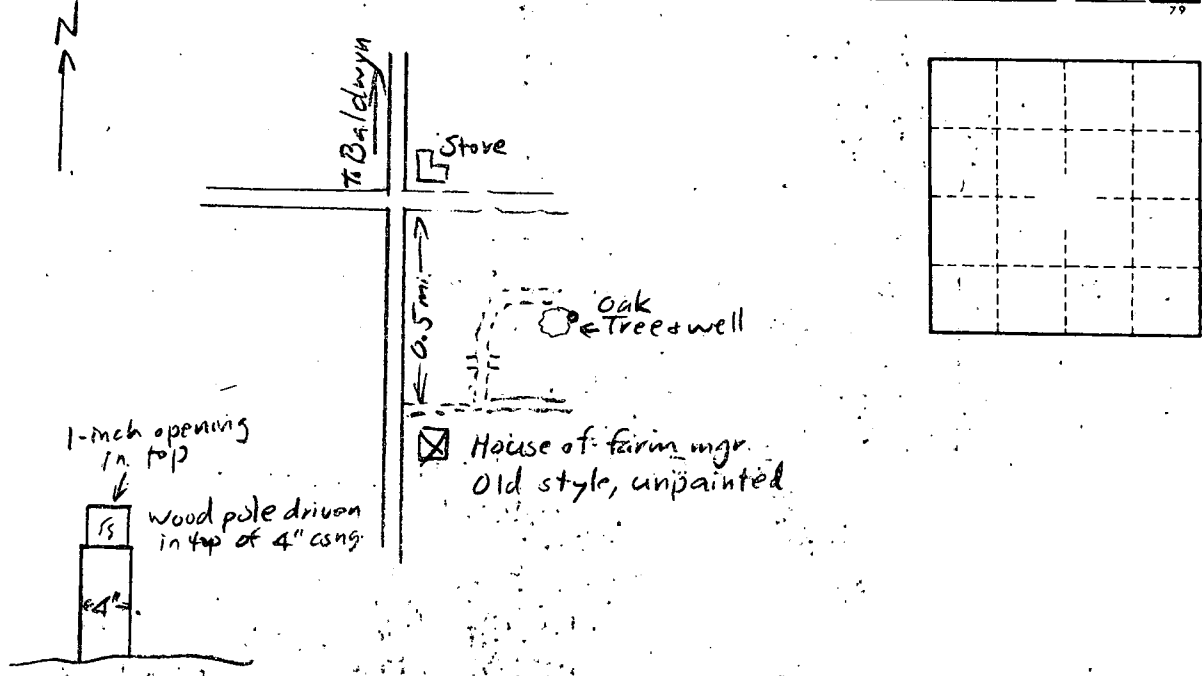 79
N
To Baldwyn
Store
0.5 mi.
Oak
Tree & well
House of farm mgr.
Old style, unpainted
1-inch opening
in top
Wood pole driven
in top of 4" csng.
4"